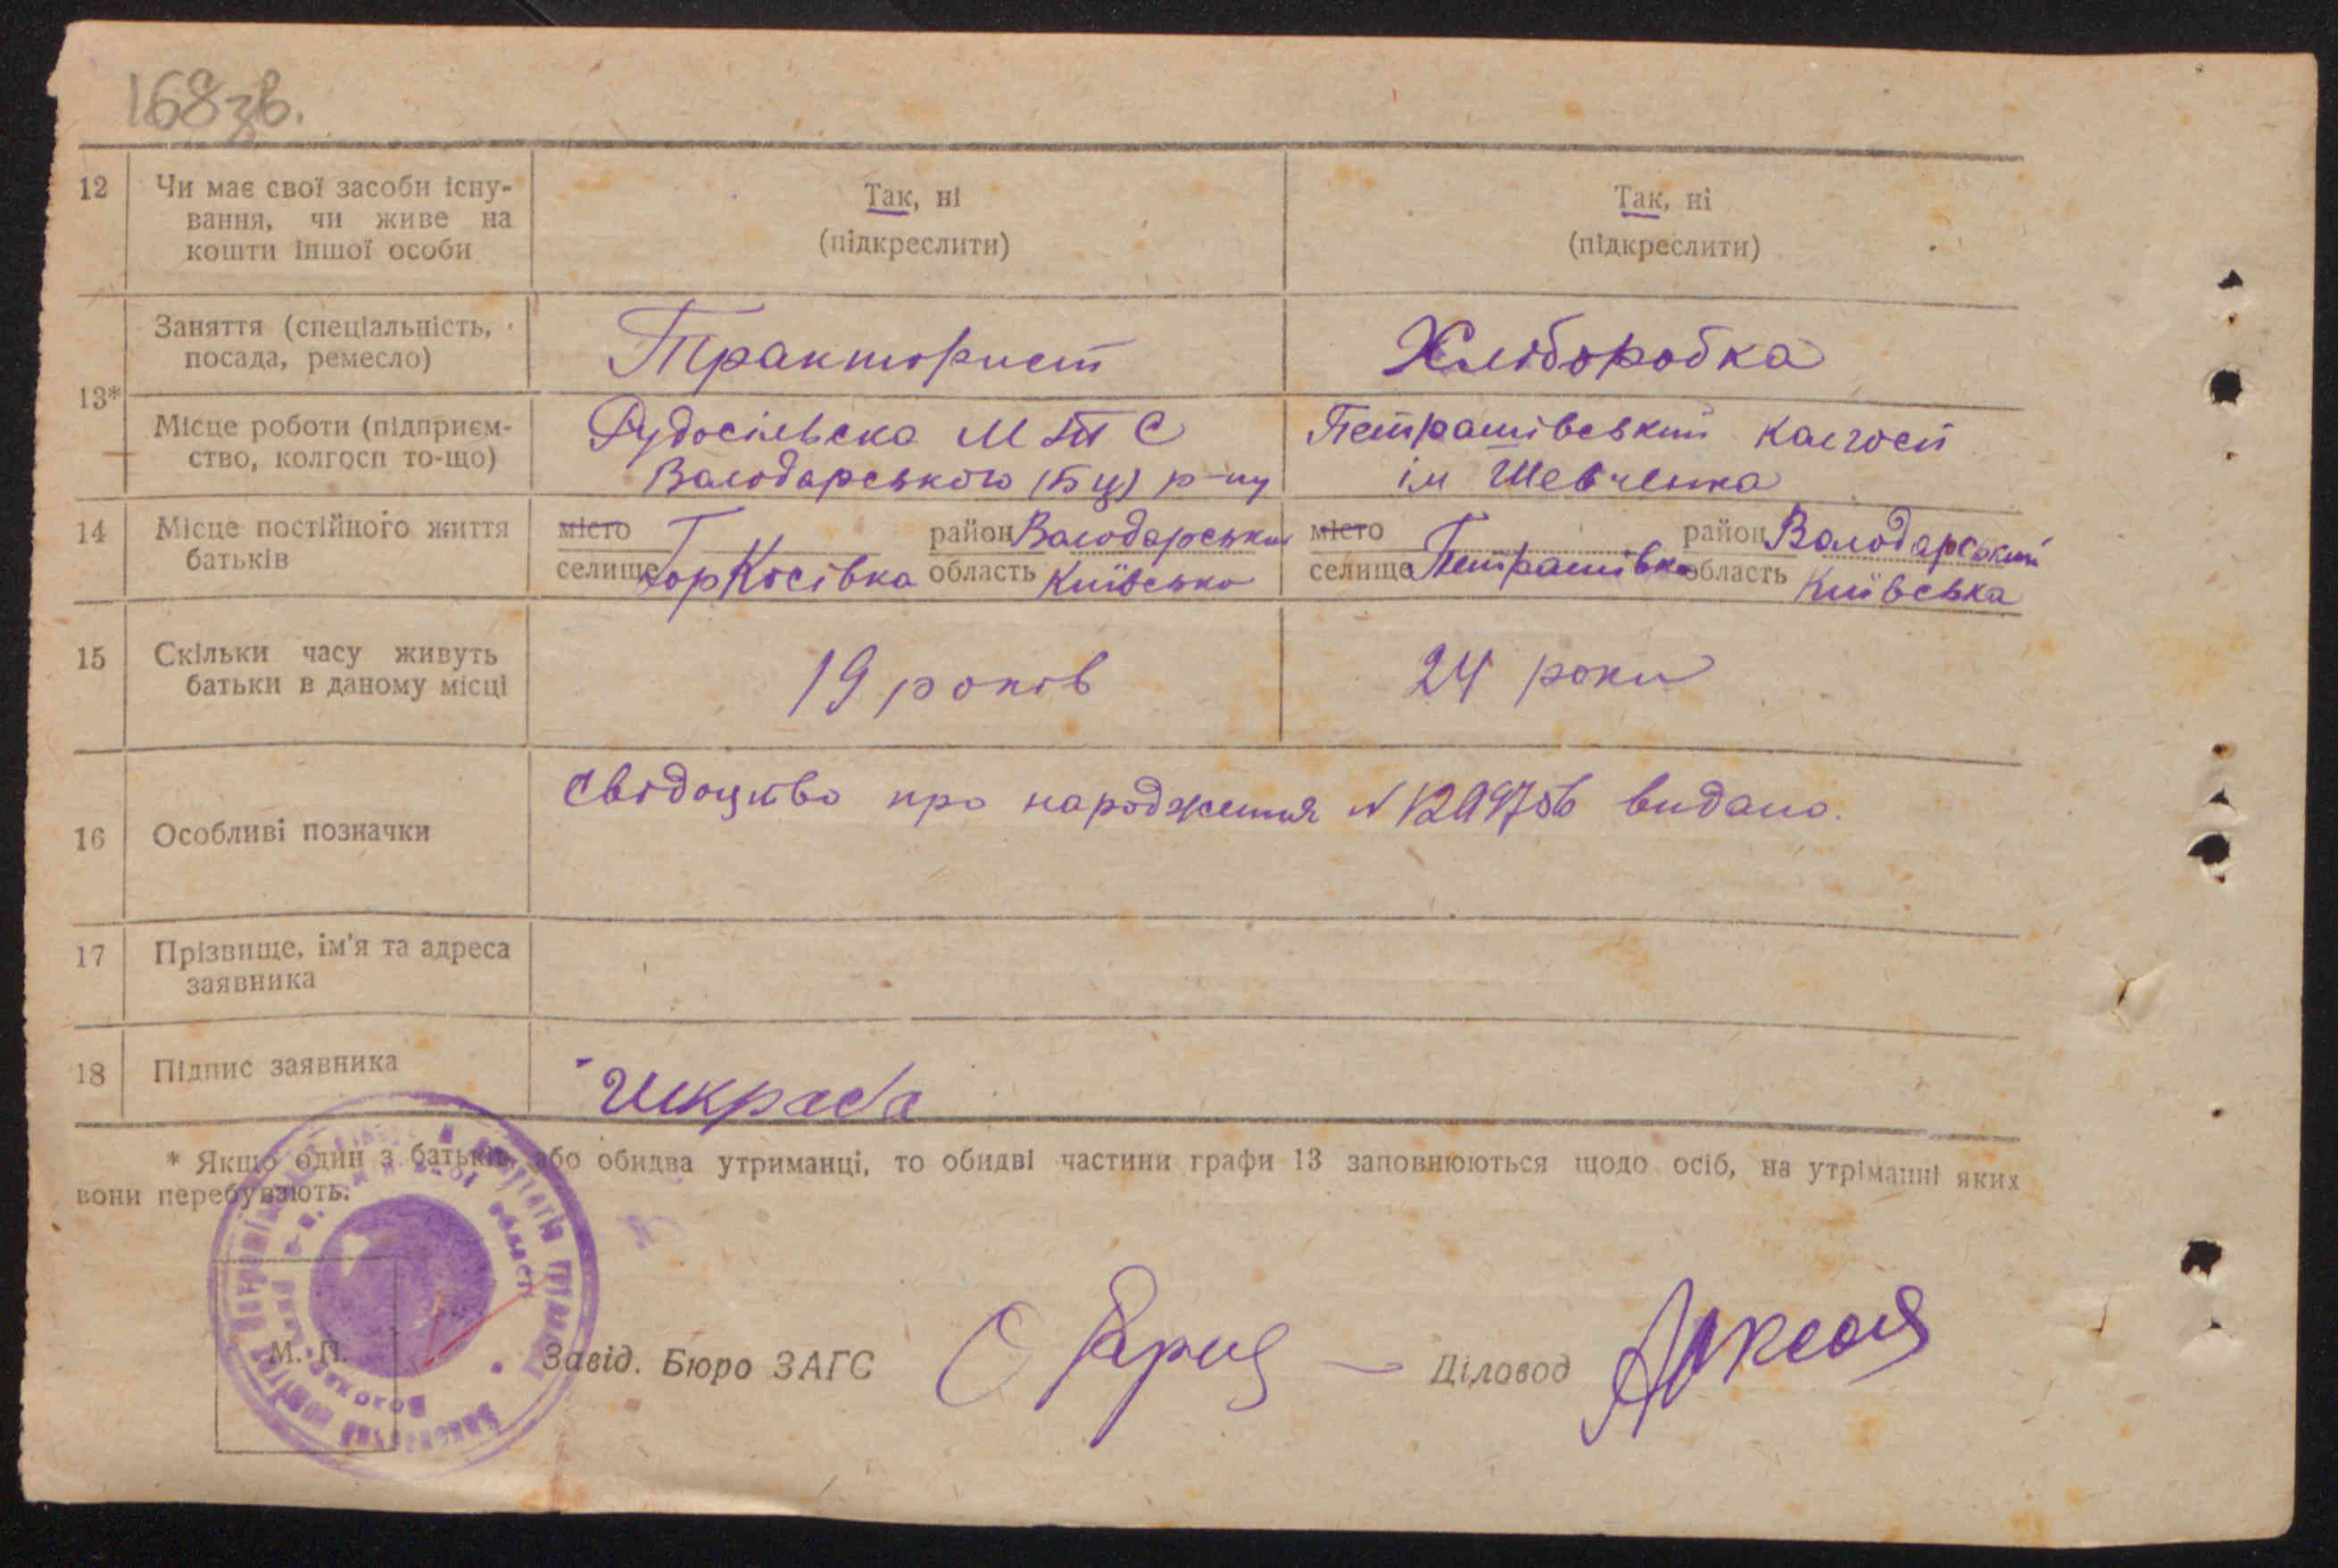 168зв.
12 Чи має свої засоби існу-
вання, чи живе на
кошти іншої особи
Так, ні
(підкреслити)
Так, ні
(підкреслити)
13*
Заняття (спеціальність,
посада, ремесло)
Тракторист
Хліборобка
Місце роботи (підприєм-
ство, колгосп то-що)
Рудосільська МТС
Володарського (Бц) р-ну
Петрашівський колгосп
ім Шевченка
14 Місце постійного життя
батьків
місто район Володарський
селище Гор Косівка область Київсько
місто район Володарський
селище Петрашівка область Київська
15 Скільки часу живуть
батьки в даному місці
19 років
24 роки
16 Особливі позначки
Свідоцтво про народження N видано.
17 Прізвище, ім'я та адреса
заявника
18 Підпис заявника
* Якщо один з батьків або обидва утриманці, то обидві частини графи 13 заповнюються щодо осіб, на утріманні яких
вони перебувають.
М. П.
Завід. Бюро ЗАГС
Діловод